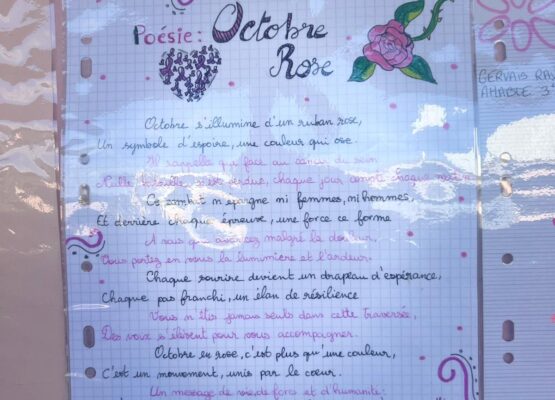 Poésie: Octobre
Rose
GERVAIS RAS
AMABLE 3°
Octobre s'illumine d'un ruban rose,
Un symbole d'espoire, une couleur qui ose.
Il rappelle que face au cancer du sein
Nulle bataille n'est perdue, chaque jour compte chaque matin
Ce combat n'epargne ni femmes, ni hommes,
Et derrière chaque épreuve, une force ce forme
A vous qui avancez malgré la douleur,
Vous portez en vous la lummière et l'ardeur.
Chaque sourire devient un drapeau d'espérance,
Chaque pas franchi, un élan de résilience
Vous n'êtes jamais seuls dans cette traversée,
Des voix s'élèvent pour vous accompagner.
Octobre en rose, c'est plus qu'une couleur,
C'est un mouvement, unis par le cœur.
Un message de vie, de force et d'humanité: